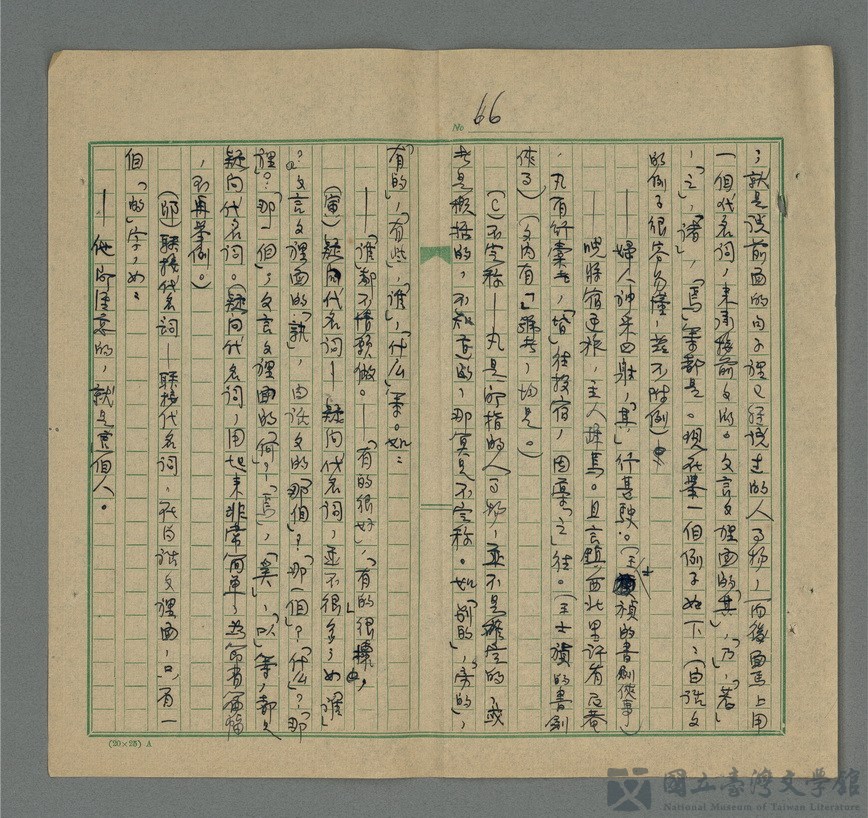 No 66
，就是說前面的句子裡已經說过的人事物，而後面馬上用
一個代名詞，來承接前文的。文言文裡面的「其」，「乃」，「若」
，「之」，「諸」，「焉」等都是。現在舉一個例子如下：（白話文
的例子很容易懂，茲不附例）
——婦人神采四射，「其」行甚駛。（王士禎的書劍俠事）
——晚將宿逆旅，主人辞焉。且言鎮西北里許有尼菴
，凡有行橐者，「皆」往投宿，因橐「之」往。（王士禎的書劍
俠事）（文內有「」號者，均是。）
（C）不定称——凡是所指的人事物，並不是確定的，或
者是概括的，不知道的，那莫是不定称。如「別的」，「旁的」，
「有的」，「有些」，「誰」，「什么」等。如：
——「誰」都不情願做。——「有的」很好，「有的」很壞。
（寅）疑问代名詞——疑问代名詞，並不很多，如「誰」
？文言文裡面的「孰」，白話文的「那個」？「那一個」？「什么」？「那
裡」？「那一個」，文言文裡面的「何」，「焉」，「奚」，「以」等，都是
疑问代名詞。（疑问代名詞，用起來非常简單，為节省篇幅
，不再舉例。）
（卯）联接代名詞——联接代名詞，在白話文裡面，只有一
個「的」字，如：
——他所注意的，就是這個人。
(20×25) A
國立臺灣文學館
National Museum of Taiwan Literature